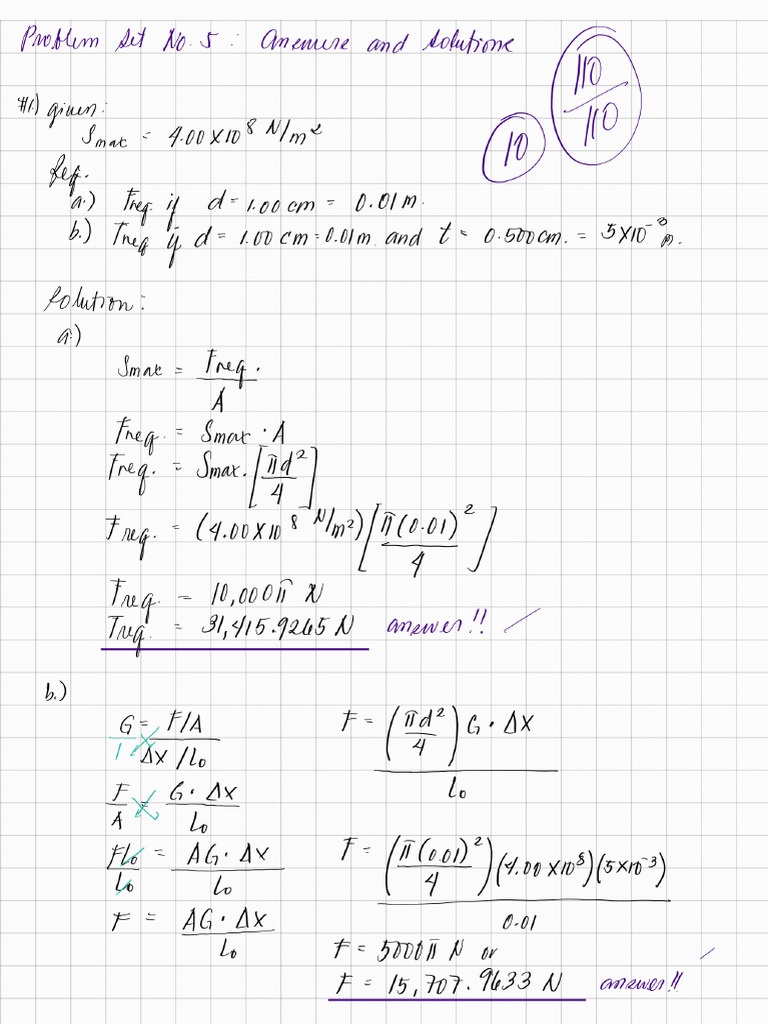 Problem Set No. 5 : Answers and Solutions
110/110
10
#1.) given:
Smax = 4.00 x 10^8 N/m^2
Req.
a.) Freq. if d = 1.00 cm = 0.01 m.
b.) Freq if d = 1.00 cm = 0.01 m. and t = 0.500 cm. = 5x10^-3 m.
Solution:
a.)
Smax = Freq. / A
Freq. = Smax · A
Freq. = Smax · [πd^2 / 4]
Freq. = (4.00 x 10^8 N/m^2) [π(0.01)^2 / 4]
Freq. = 10,000π N
Freq. = 31,415.9265 N answer!!
b.)
G / 1 = F/A / Δx/Lo
F / A = G · Δx / Lo
FLo / Lo = AG · Δx / Lo
F = AG · Δx / Lo
F = (πd^2 / 4) G · Δx / Lo
F = (π(0.01)^2 / 4) (4.00 x 10^8) (5x10^-3) / 0.01
F = 5000π N or
F = 15,707.9633 N answer!!